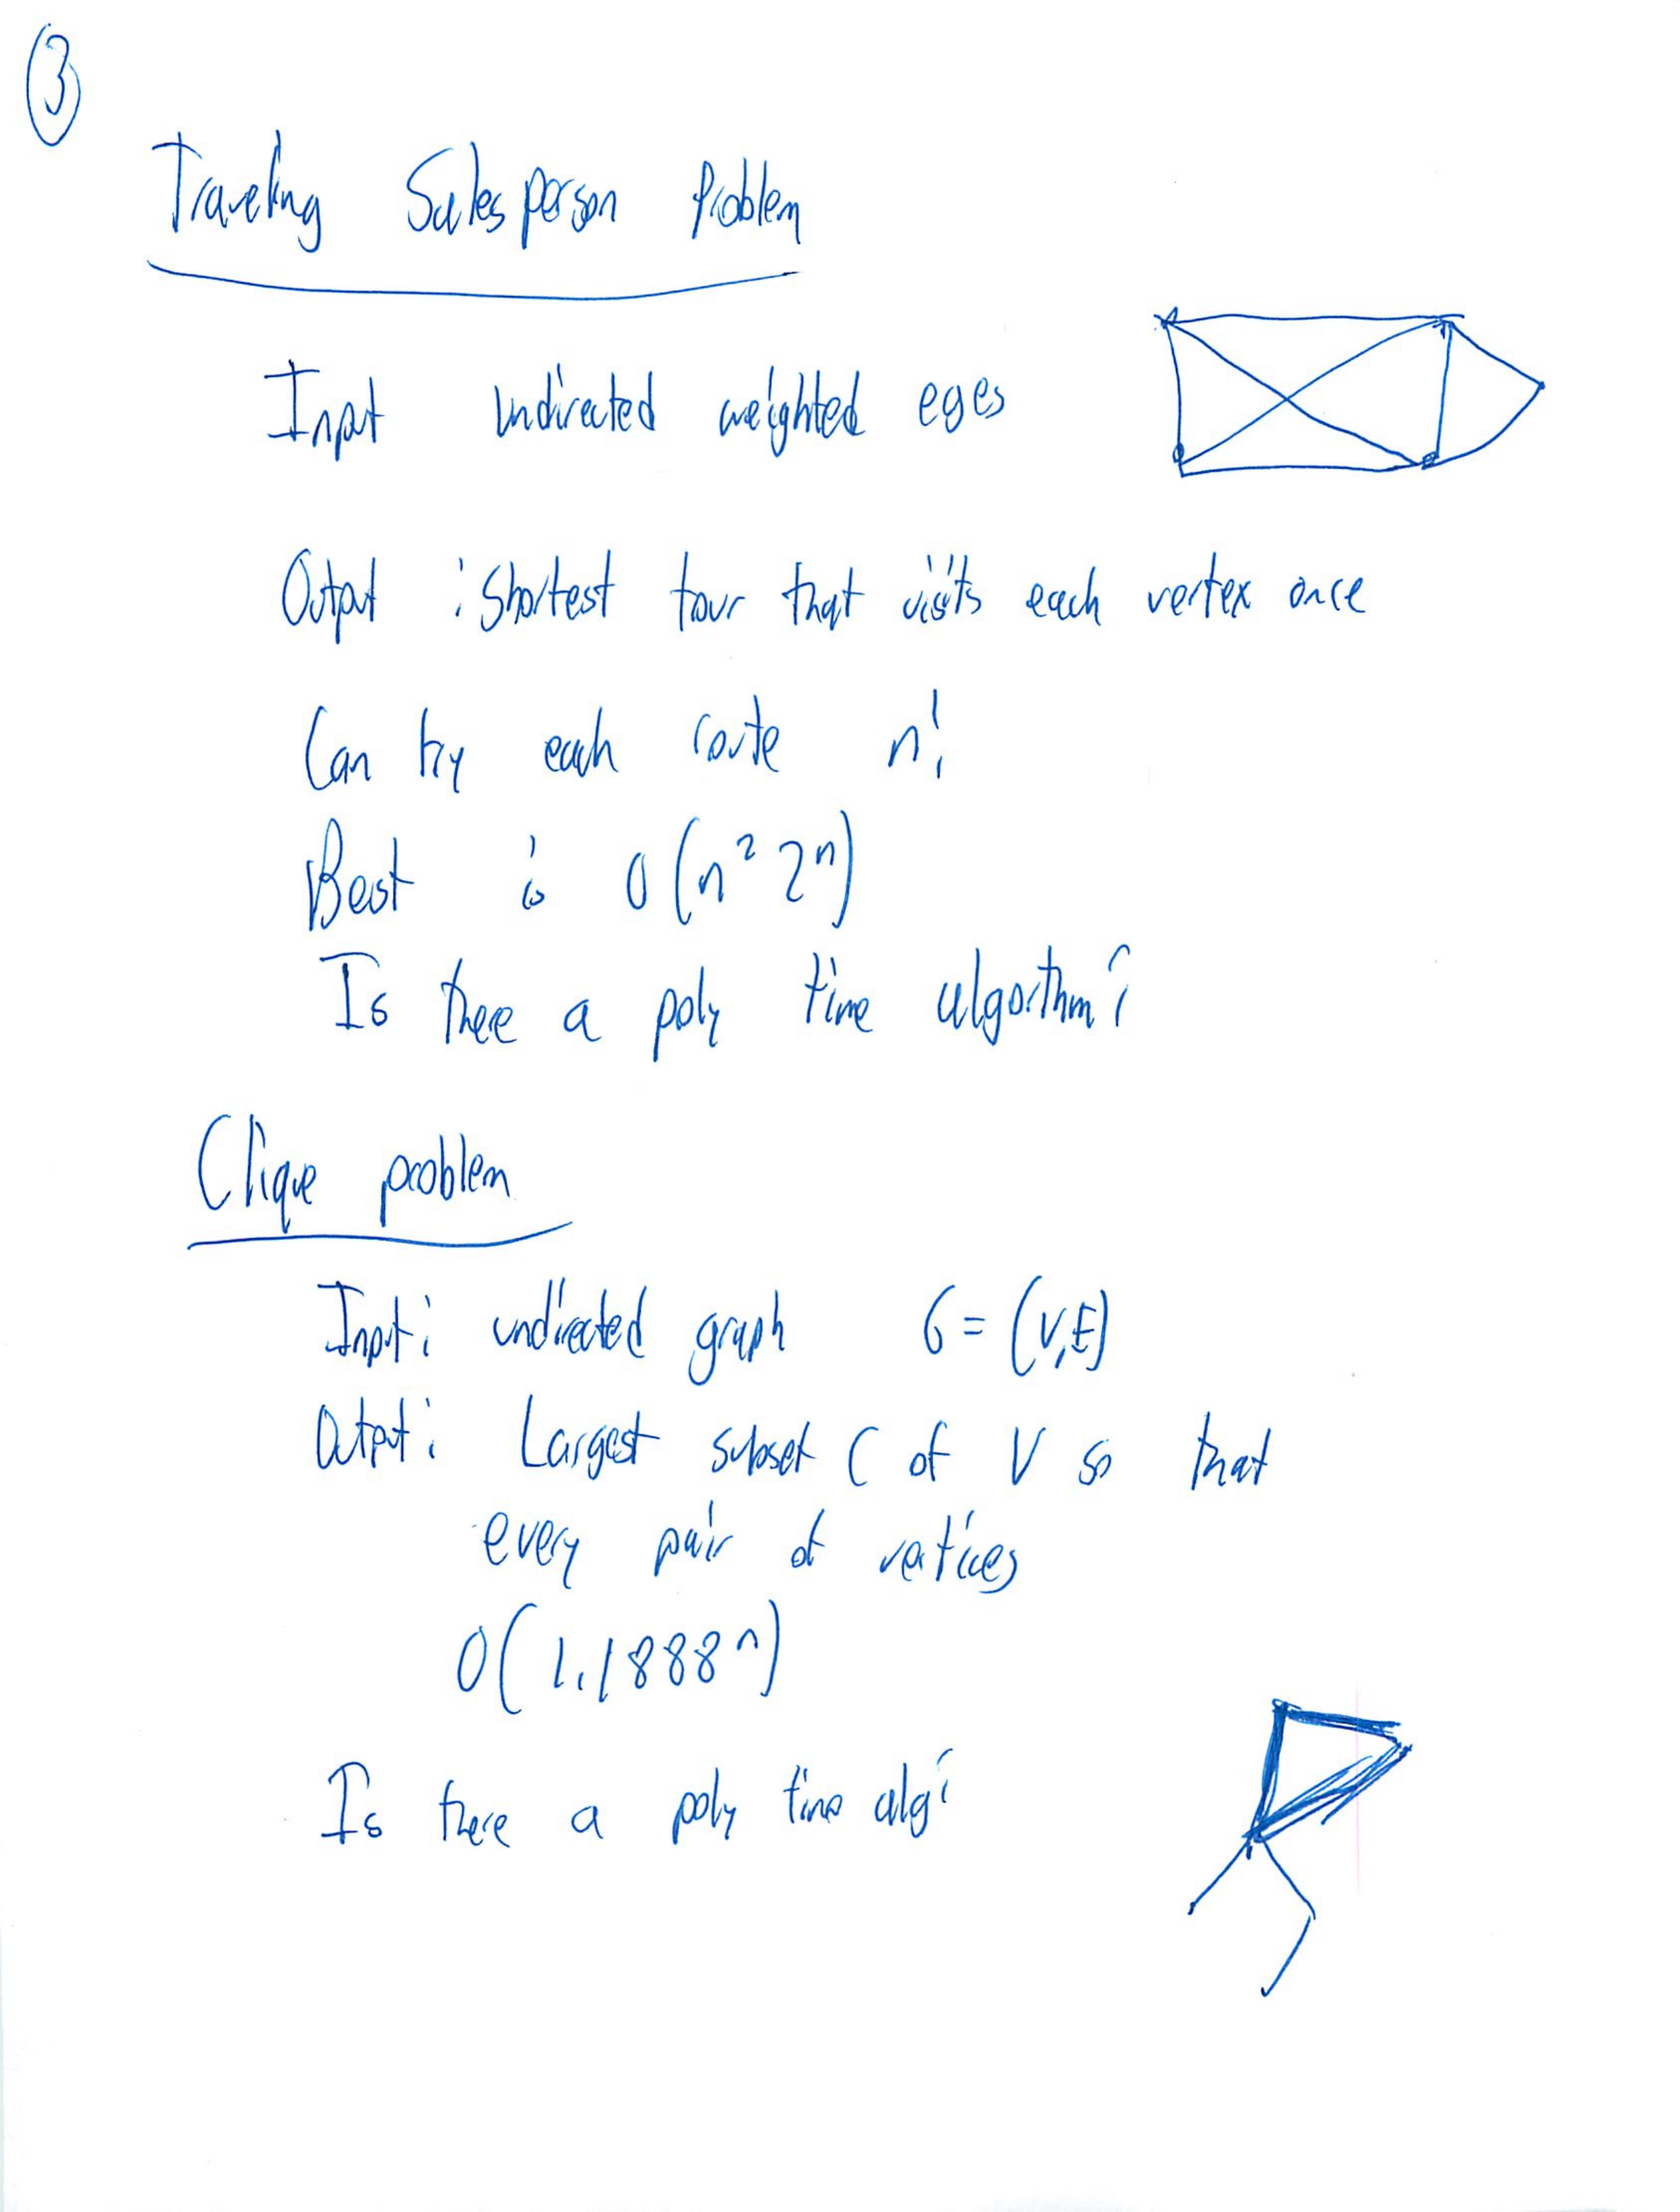 3
Traveling Salesperson Problem
Input undirected weighted eges
Output : Shortest tour that visits each vertex once
Can try each route n!
Best is O(n² 2ⁿ)
Is there a poly time algorithm?
Clique problem
Input: undirected graph G = (V,E)
Output: Largest subset C of V so that
every pair of vertices
O(1.1888ⁿ)
Is there a poly time alg?